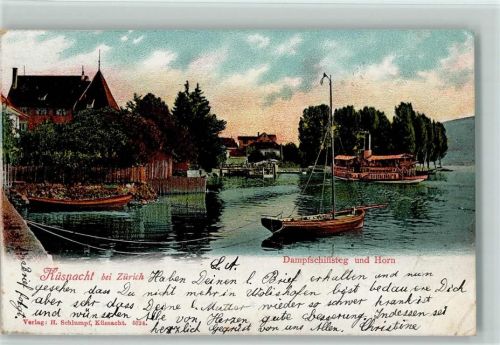 Dampfschiffsteg und Horn
Küsnacht bei Zürich
L. A.
Haben Deinen l. Brief erhalten und nun
gesehen dass Du nicht mehr in Wollishofen bist bedauern Dich
aber sehr dass Deine l. Mutter wieder so schwer krank ist
und wünschen Alle von Herzen gute Besserung. Indessen sei
herzlich Gegrüsst von uns Allen. Christine
Brief folgt
Verlag: H. Schlumpf, Küsnacht. 5524.